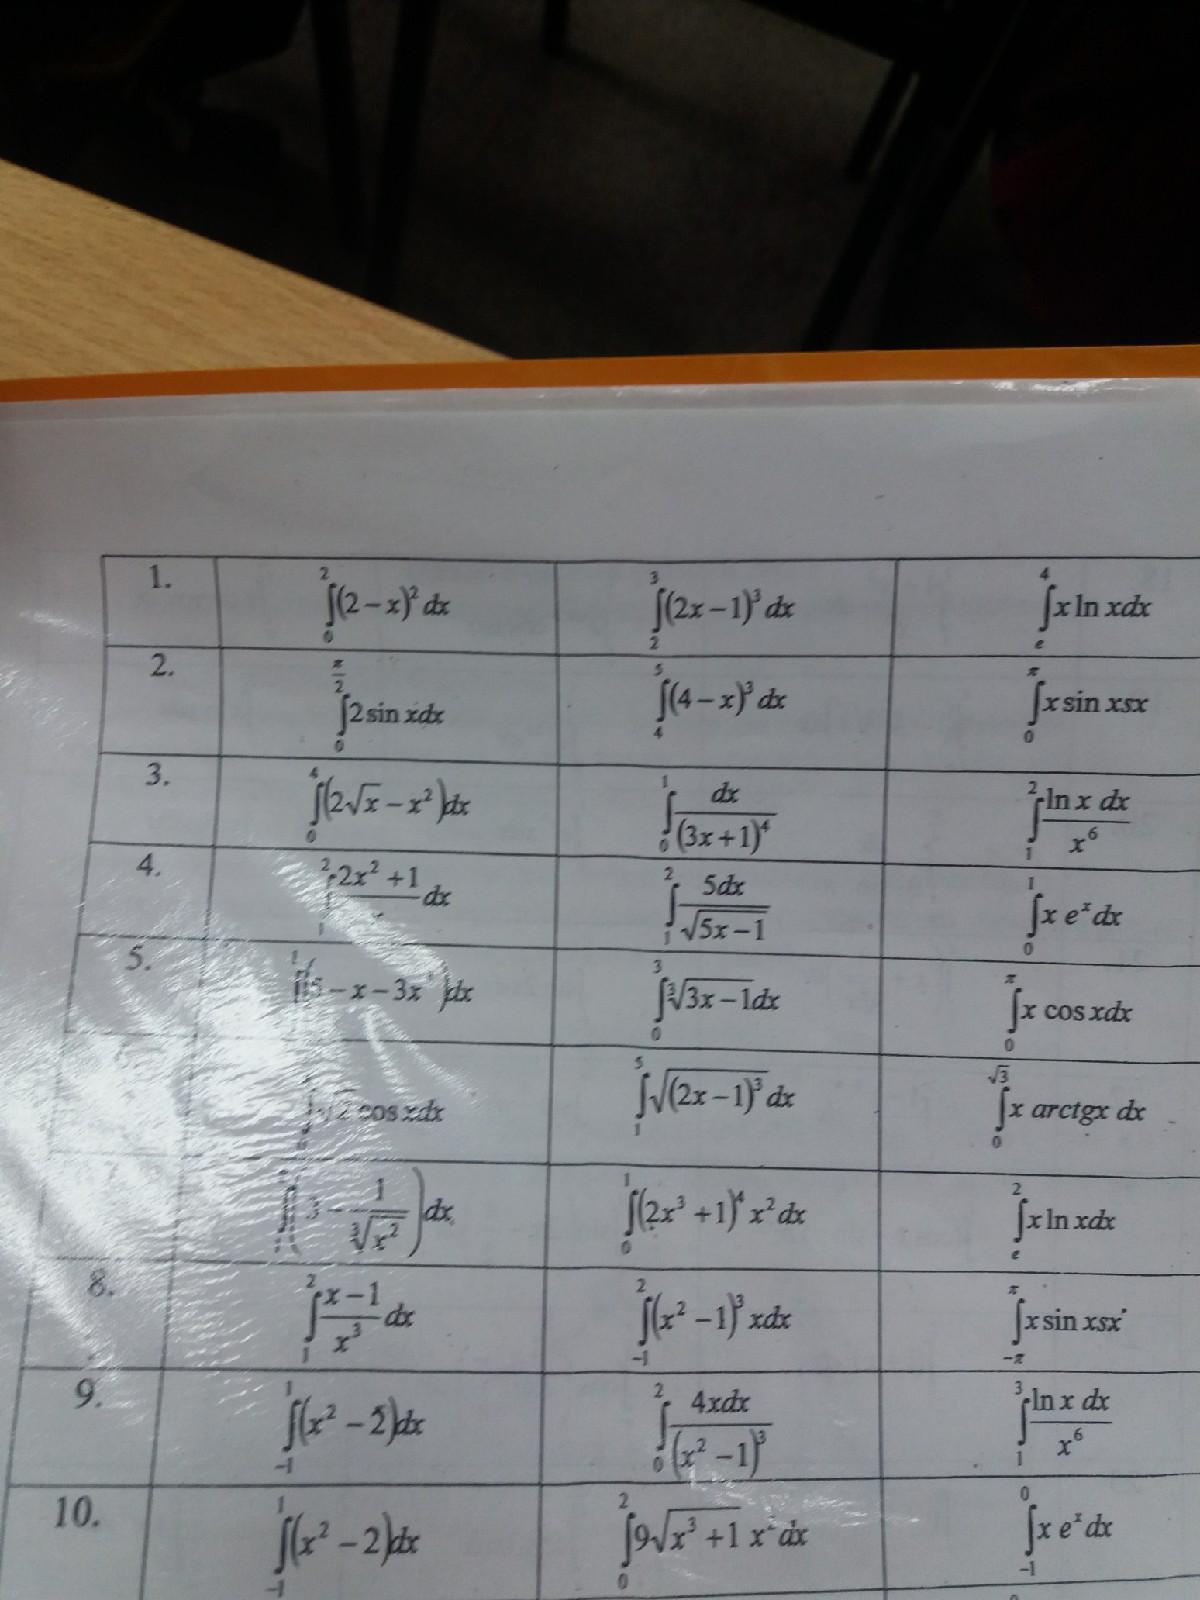 1. ∫₀² (2 − x)² dx ∫₂³ (2x − 1)³ dx ∫ₑ⁴ x ln xdx
2. ∫₀^(π/2) 2 sin xdx ∫₄⁵ (4 − x)³ dx ∫₀^π x sin xsx
3. ∫₀⁴ (2√x − x²)dx ∫₀¹ dx/(3x + 1)⁴ ∫₁² ln x dx/x⁶
4. ∫₁² 2x² + 1/ dx ∫₁² 5dx/√(5x − 1) ∫₀¹ x eˣ dx
5. − x − 3x dx ∫₀³ ∛(3x − 1)dx ∫₀^π x cos xdx
√2 cos xdx ∫₁⁵ √((2x − 1)³) dx ∫₀^√3 x arctgx dx
(3 − 1/∛(x²))dx ∫₀¹ (2x³ + 1)⁴ x² dx ∫ₑ² x ln xdx
8. ∫₁² (x − 1)/x³ dx ∫₋₁² (x² − 1)³ xdx ∫_(−π)^π x sin xsx
9. ∫₋₁¹ (x² − 2)dx ∫₀² 4xdx/(x² − 1)³ ∫₁³ ln x dx/x⁶
10. ∫₋₁¹ (x² − 2)dx ∫₀² 9√(x³ + 1) x² dx ∫₋₁⁰ x eˣ dx